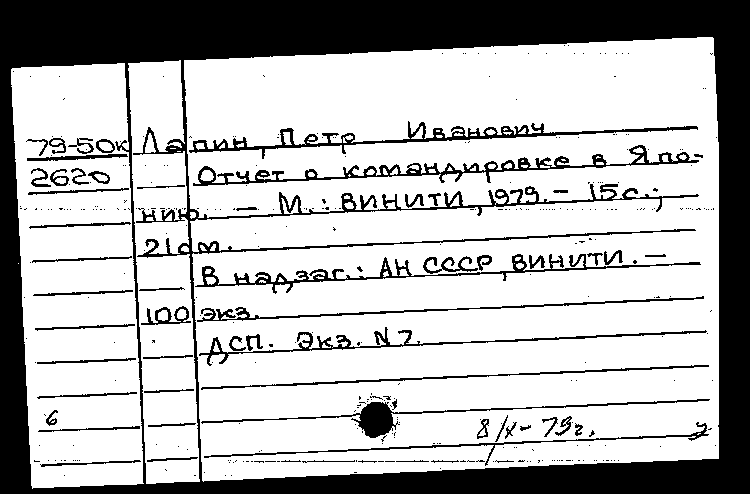 79-50к Лапин, Петр Иванович
2620 Отчет о командировке в Япо-
нию. — М.: ВИНИТИ, 1979. — 15с.;
21см.
В надзаг.: АН СССР, ВИНИТИ. —
100 экз.
ДСП. Экз. N 7.
6
8/X-79г.